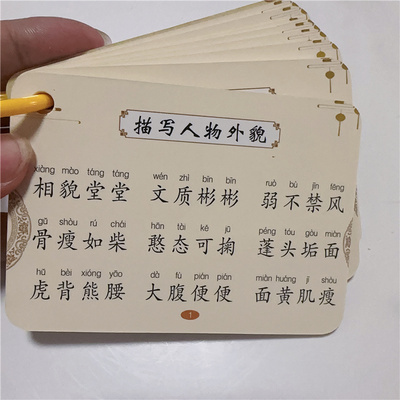 描写人物外貌
xiàng mào táng táng wén zhì bīn bīn ruò bù jīn fēng
相貌堂堂 文质彬彬 弱不禁风
gǔ shòu rú chái hān tài kě jū péng tóu gòu miàn
骨瘦如柴 憨态可掬 蓬头垢面
hǔ bèi xióng yāo dà fù pián pián miàn huáng jī shòu
虎背熊腰 大腹便便 面黄肌瘦
1